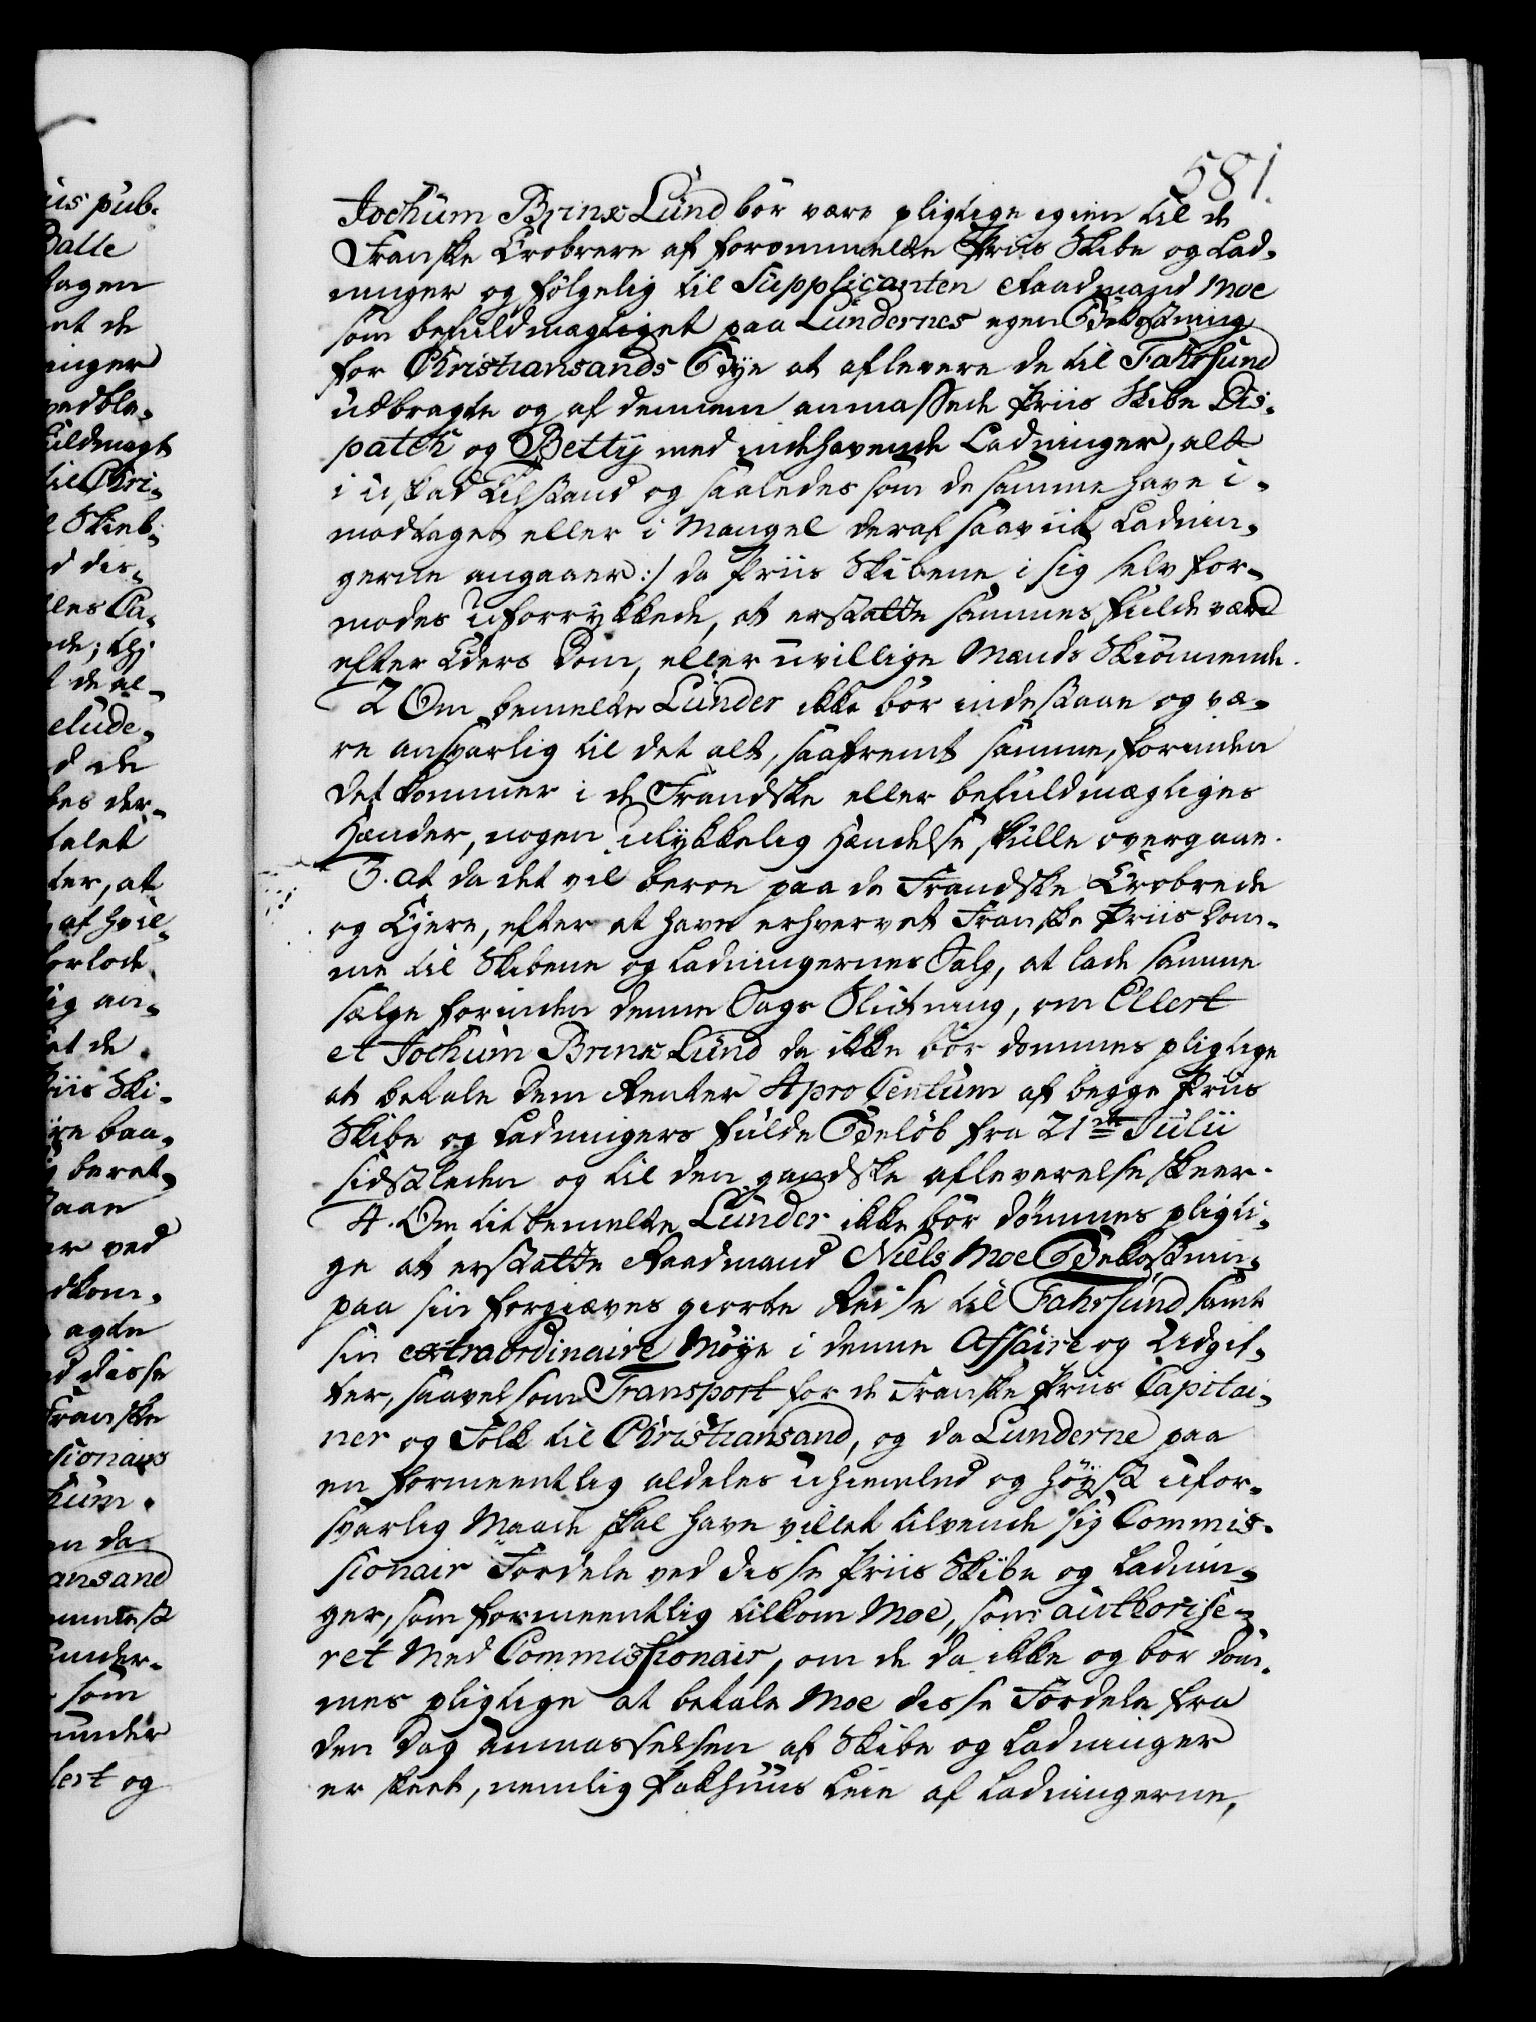 581.
Jochum Brinx Lund bör være pligtige igien til de
Franske Erobrere af forommelte Priis Skibe og Lad-
ninger og følgelig til Supplicanten Raadmand Moe
som befuldmægtiget paa Lundernes egen Bekostning
for Christiansands Bÿe at aflevere de til Fahrsund
udbragte og af dennem anmassede Priis Skibe Dis-
patch og Bettÿ med indehavende Ladninger, alt
i uskad Tilstand og saaledes som de samme have i-
modtaget eller i Mangel deraf saaviit Ladnin-
gerne angaaer :/ da Priis Skibene i sig selv for-
modes uforrykkede, at erstatte sammes fulde værd
efter Eders Dom, eller uvillige Mænds Skiönnende.
2 Om bemelte Lunder ikke bör indestaae og væ-
re ansvarlig til det alt, saafremt samme, forinden
det kommer i de Frandske eller befuldmægtiges
Hænder, nogen ulykkelig Hændelse skulle overgaae.
3. at da det vil beroe paa de Frandske Erobrede
og Ejere, efter at have erhvervet Franske Priis Dom-
me til Skibene og Ladningernes Salg, at lade samme
sælge forinden denne Sags Slutning, om Ellert
et Jochum Brinx Lund da ikke bör dommes pligtige
at betale dem Renter 4 pro Centum af begge Priis
Skibe og Ladningers fulde Beløb fra 21de Julii
sidstleden og til den gandske afleverelse skeer.
4. Om titbemelte Lunder ikke bör dömmes pligti-
ge at erstatte Raadmand Niels Moe Bekostnin-
paa sin forgiæves giorte Reise til Fahrsund samt
sin extraordinaire Möÿe i denne Affaire og Udgif-
ter, saavelsom Transport for de Franske Priis Capitai-
ner og Folk til Christiansand, og da Lunderne paa
en formeentlig aldeles uhiemled og höÿst ufor-
svarlig Maade skal have villet tilvende sig Commis-
sionair Fordele ved disse Priis Skibe og Ladnin-
ger, som formeentlig tilkom Moe, som authorise-
ret Med Commissionair, om de da ikke og bör döm-
mes pligtige at betale Moe disse Fordele fra
den Dag Anmasselsen af Skibe og Ladninger
er skeet, nemlig Pakhuus Leie af Ladningerne,